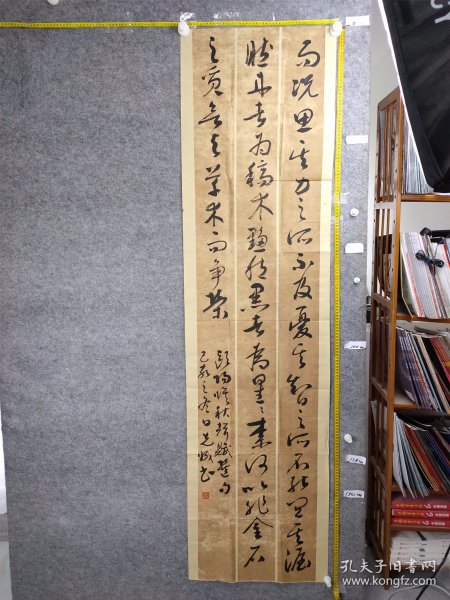 而况思其力之所不及憂其智之所不能宜其渥
然丹者为槁木黟然黑者為星々奈何以非金石
之質欲与草木而争榮
欧陽脩秋聲賦選句
己亥之冬日
孔夫子旧书网
www.kongfz.com